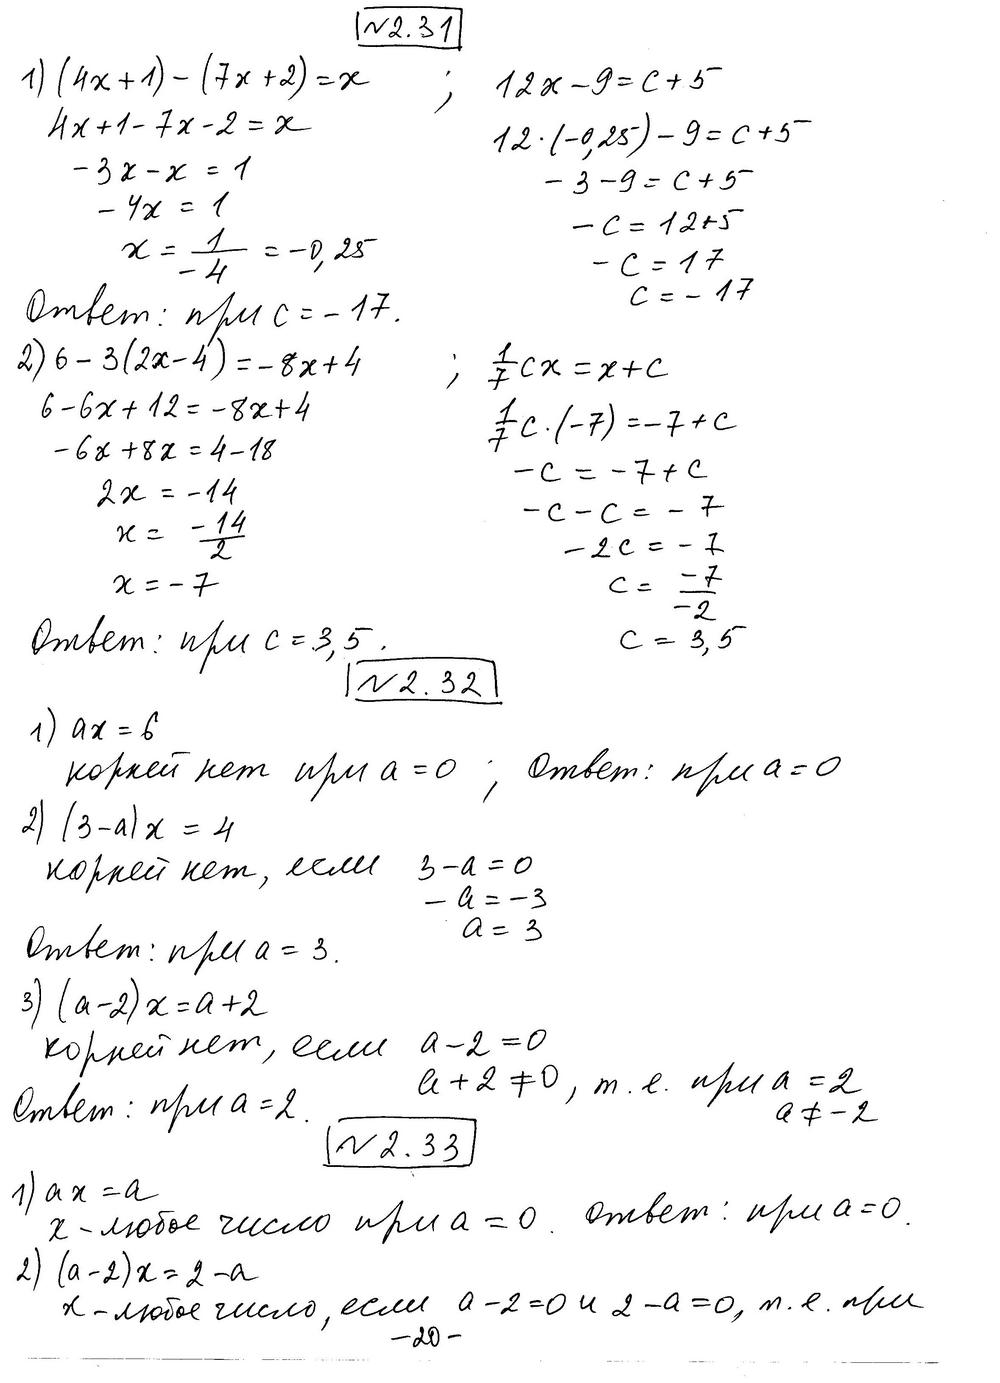 №2.31
1) (4x+1)-(7x+2)=x ; 12x-9=c+5
4x+1-7x-2=x 12·(-0,25)-9=c+5
-3x-x=1 -3-9=c+5
-4x=1 -c=12+5
x=1/-4=-0,25 -c=17
c=-17
Ответ: при c=-17.
2) 6-3(2x-4)=-8x+4 ; 1/7cx=x+c
6-6x+12=-8x+4 1/7c·(-7)=-7+c
-6x+8x=4-18 -c=-7+c
2x=-14 -c-c=-7
x=-14/2 -2c=-7
x=-7 c=-7/-2
Ответ: при c=3,5. c=3,5
№2.32
1) ax=6
корней нет при a=0 ; Ответ: при a=0
2) (3-a)x=4
корней нет, если 3-a=0
-a=-3
a=3
Ответ: при a=3.
3) (a-2)x=a+2
корней нет, если a-2=0
a+2≠0, т.е. при a=2
Ответ: при a=2. a≠-2
№2.33
1) ax=a
x-любое число при a=0. Ответ: при a=0.
2) (a-2)x=2-a
x-любое число, если a-2=0 и 2-a=0, т.е. при
-20-